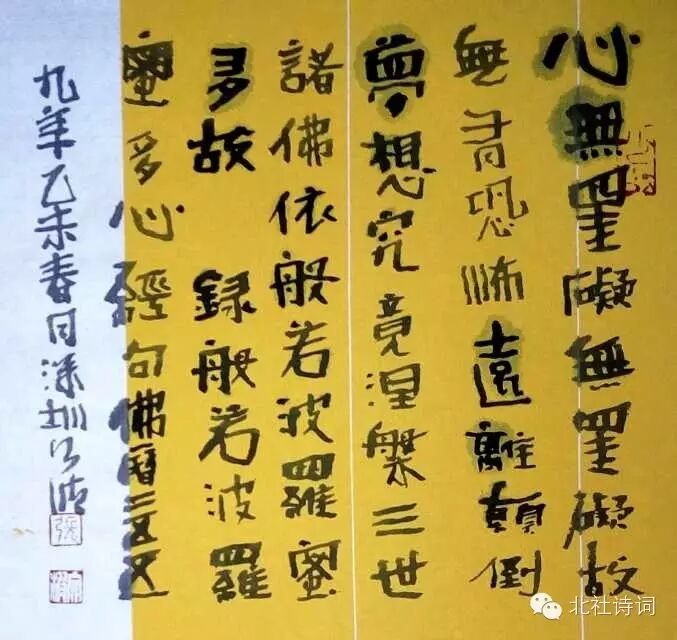 心無罣礙無罣礙故
無有恐怖遠離顛倒
夢想究竟涅槃三世
諸佛依般若波羅蜜
多故 録般若波羅
蜜多心經句佛曆二五五
九年乙未春日深圳
北社诗词